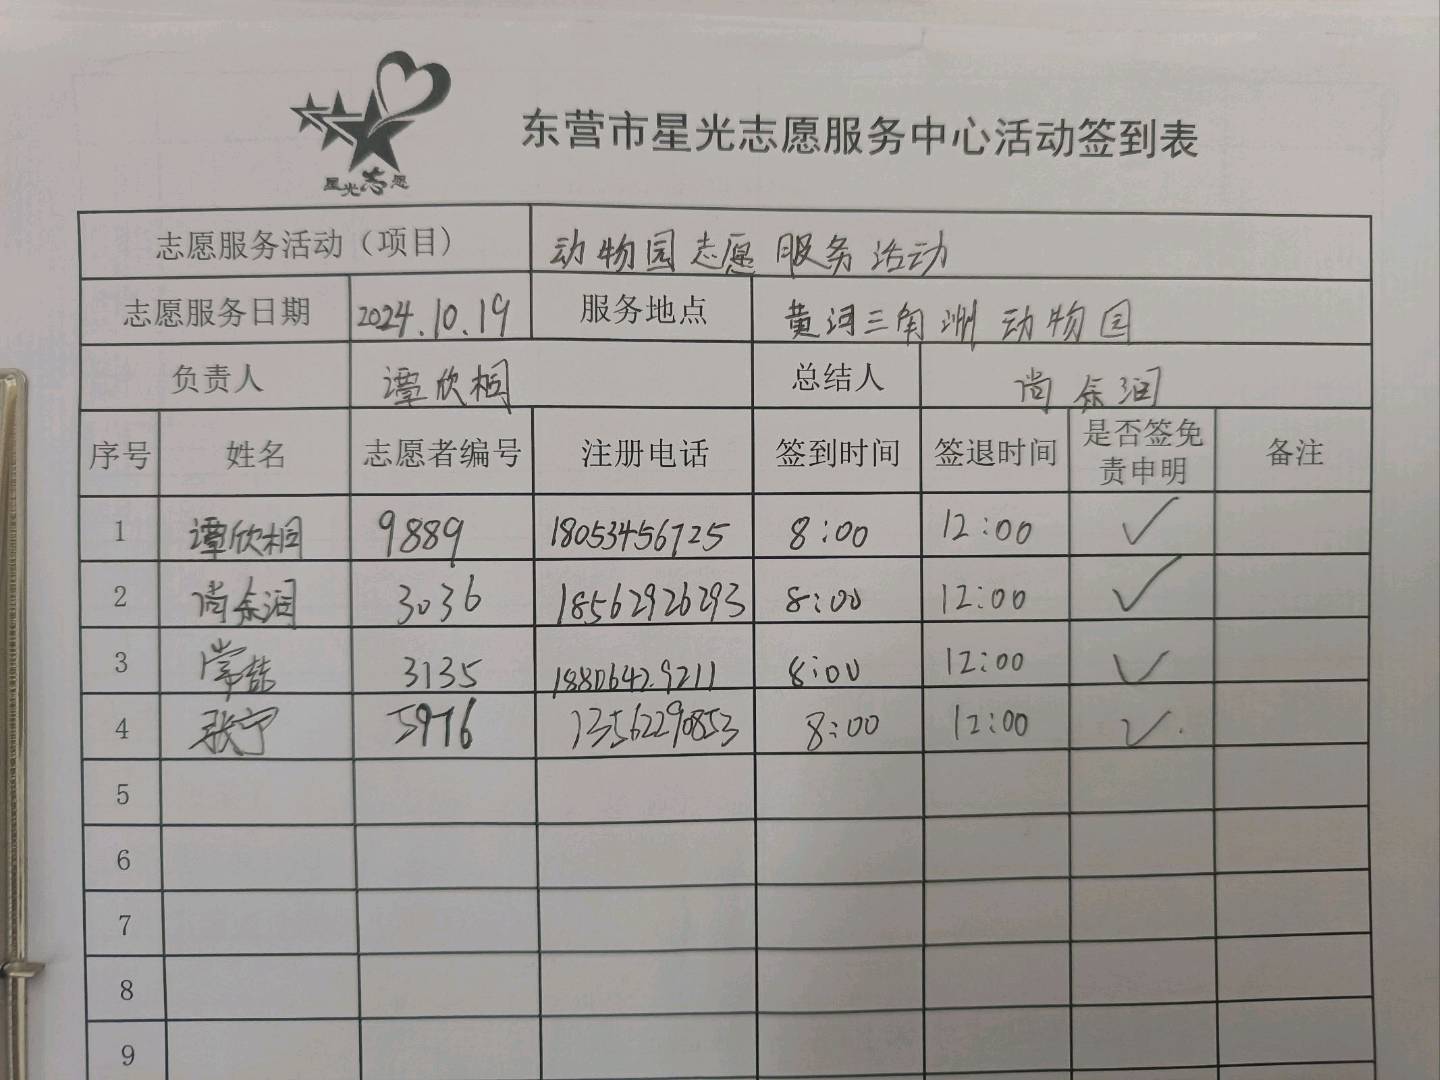 星光志愿
东营市星光志愿服务中心活动签到表
志愿服务活动（项目） 动物园志愿服务活动
志愿服务日期 2024.10.19 服务地点 黄河三角洲动物园
负责人 谭欣桐 总结人 尚余润
序号 姓名 志愿者编号 注册电话 签到时间 签退时间 是否签免责申明 备注
1 谭欣桐 9889 18053456725 8:00 12:00 ✓
2 尚余润 3036 18562926293 8:00 12:00 ✓
3 常喆 3135 18806429211 8:00 12:00 ✓
4 张宁 5976 13562290853 8:00 12:00 ✓
5
6
7
8
9